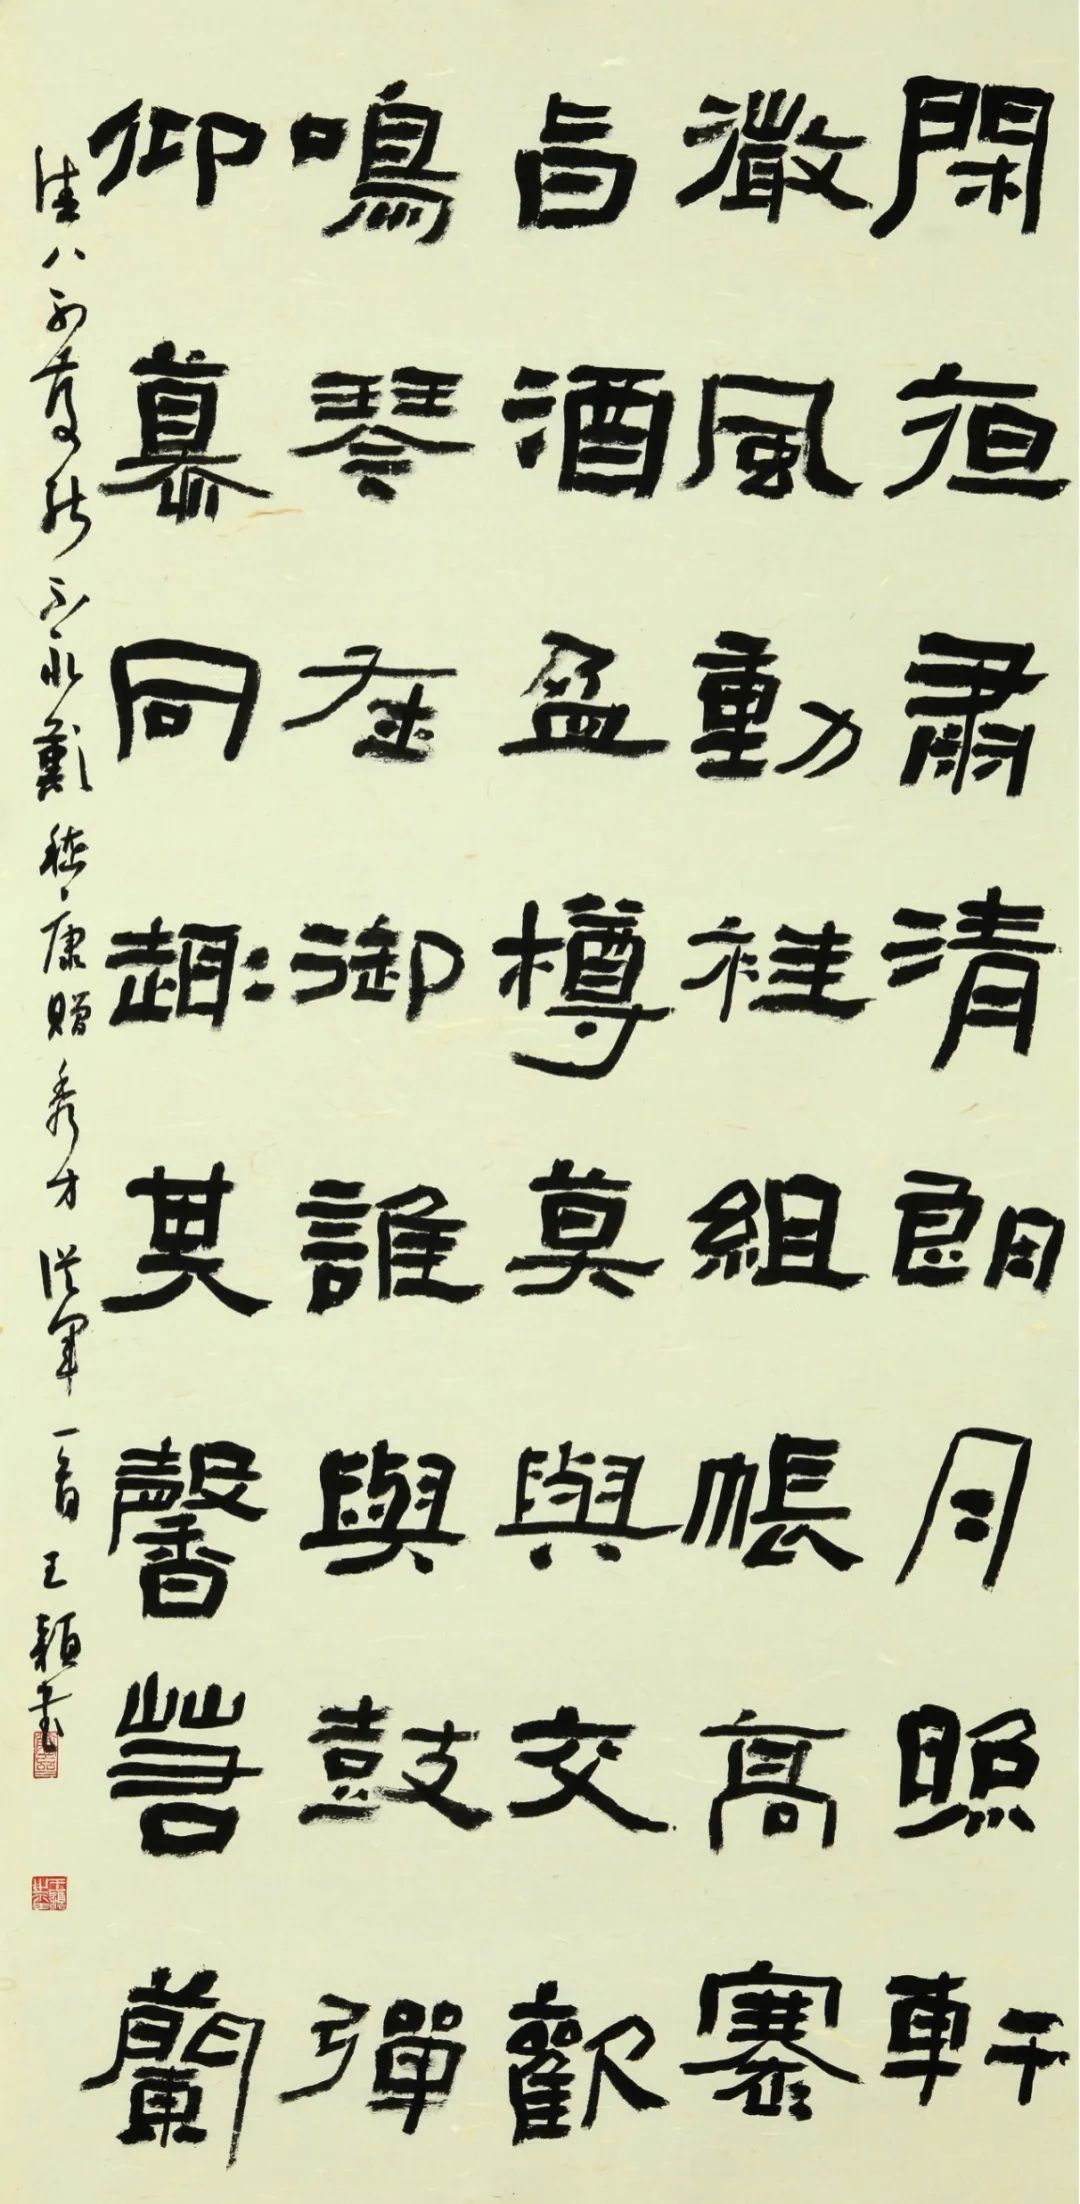 閑亱肅清朗月照軒
微風動袿組帳高褰
旨酒盈樽莫與交歡
鳴琴在御誰與鼓彈
仰慕同趣其馨若蘭
佳人不存能不永歎嵇康贈秀才從軍一首王穎書